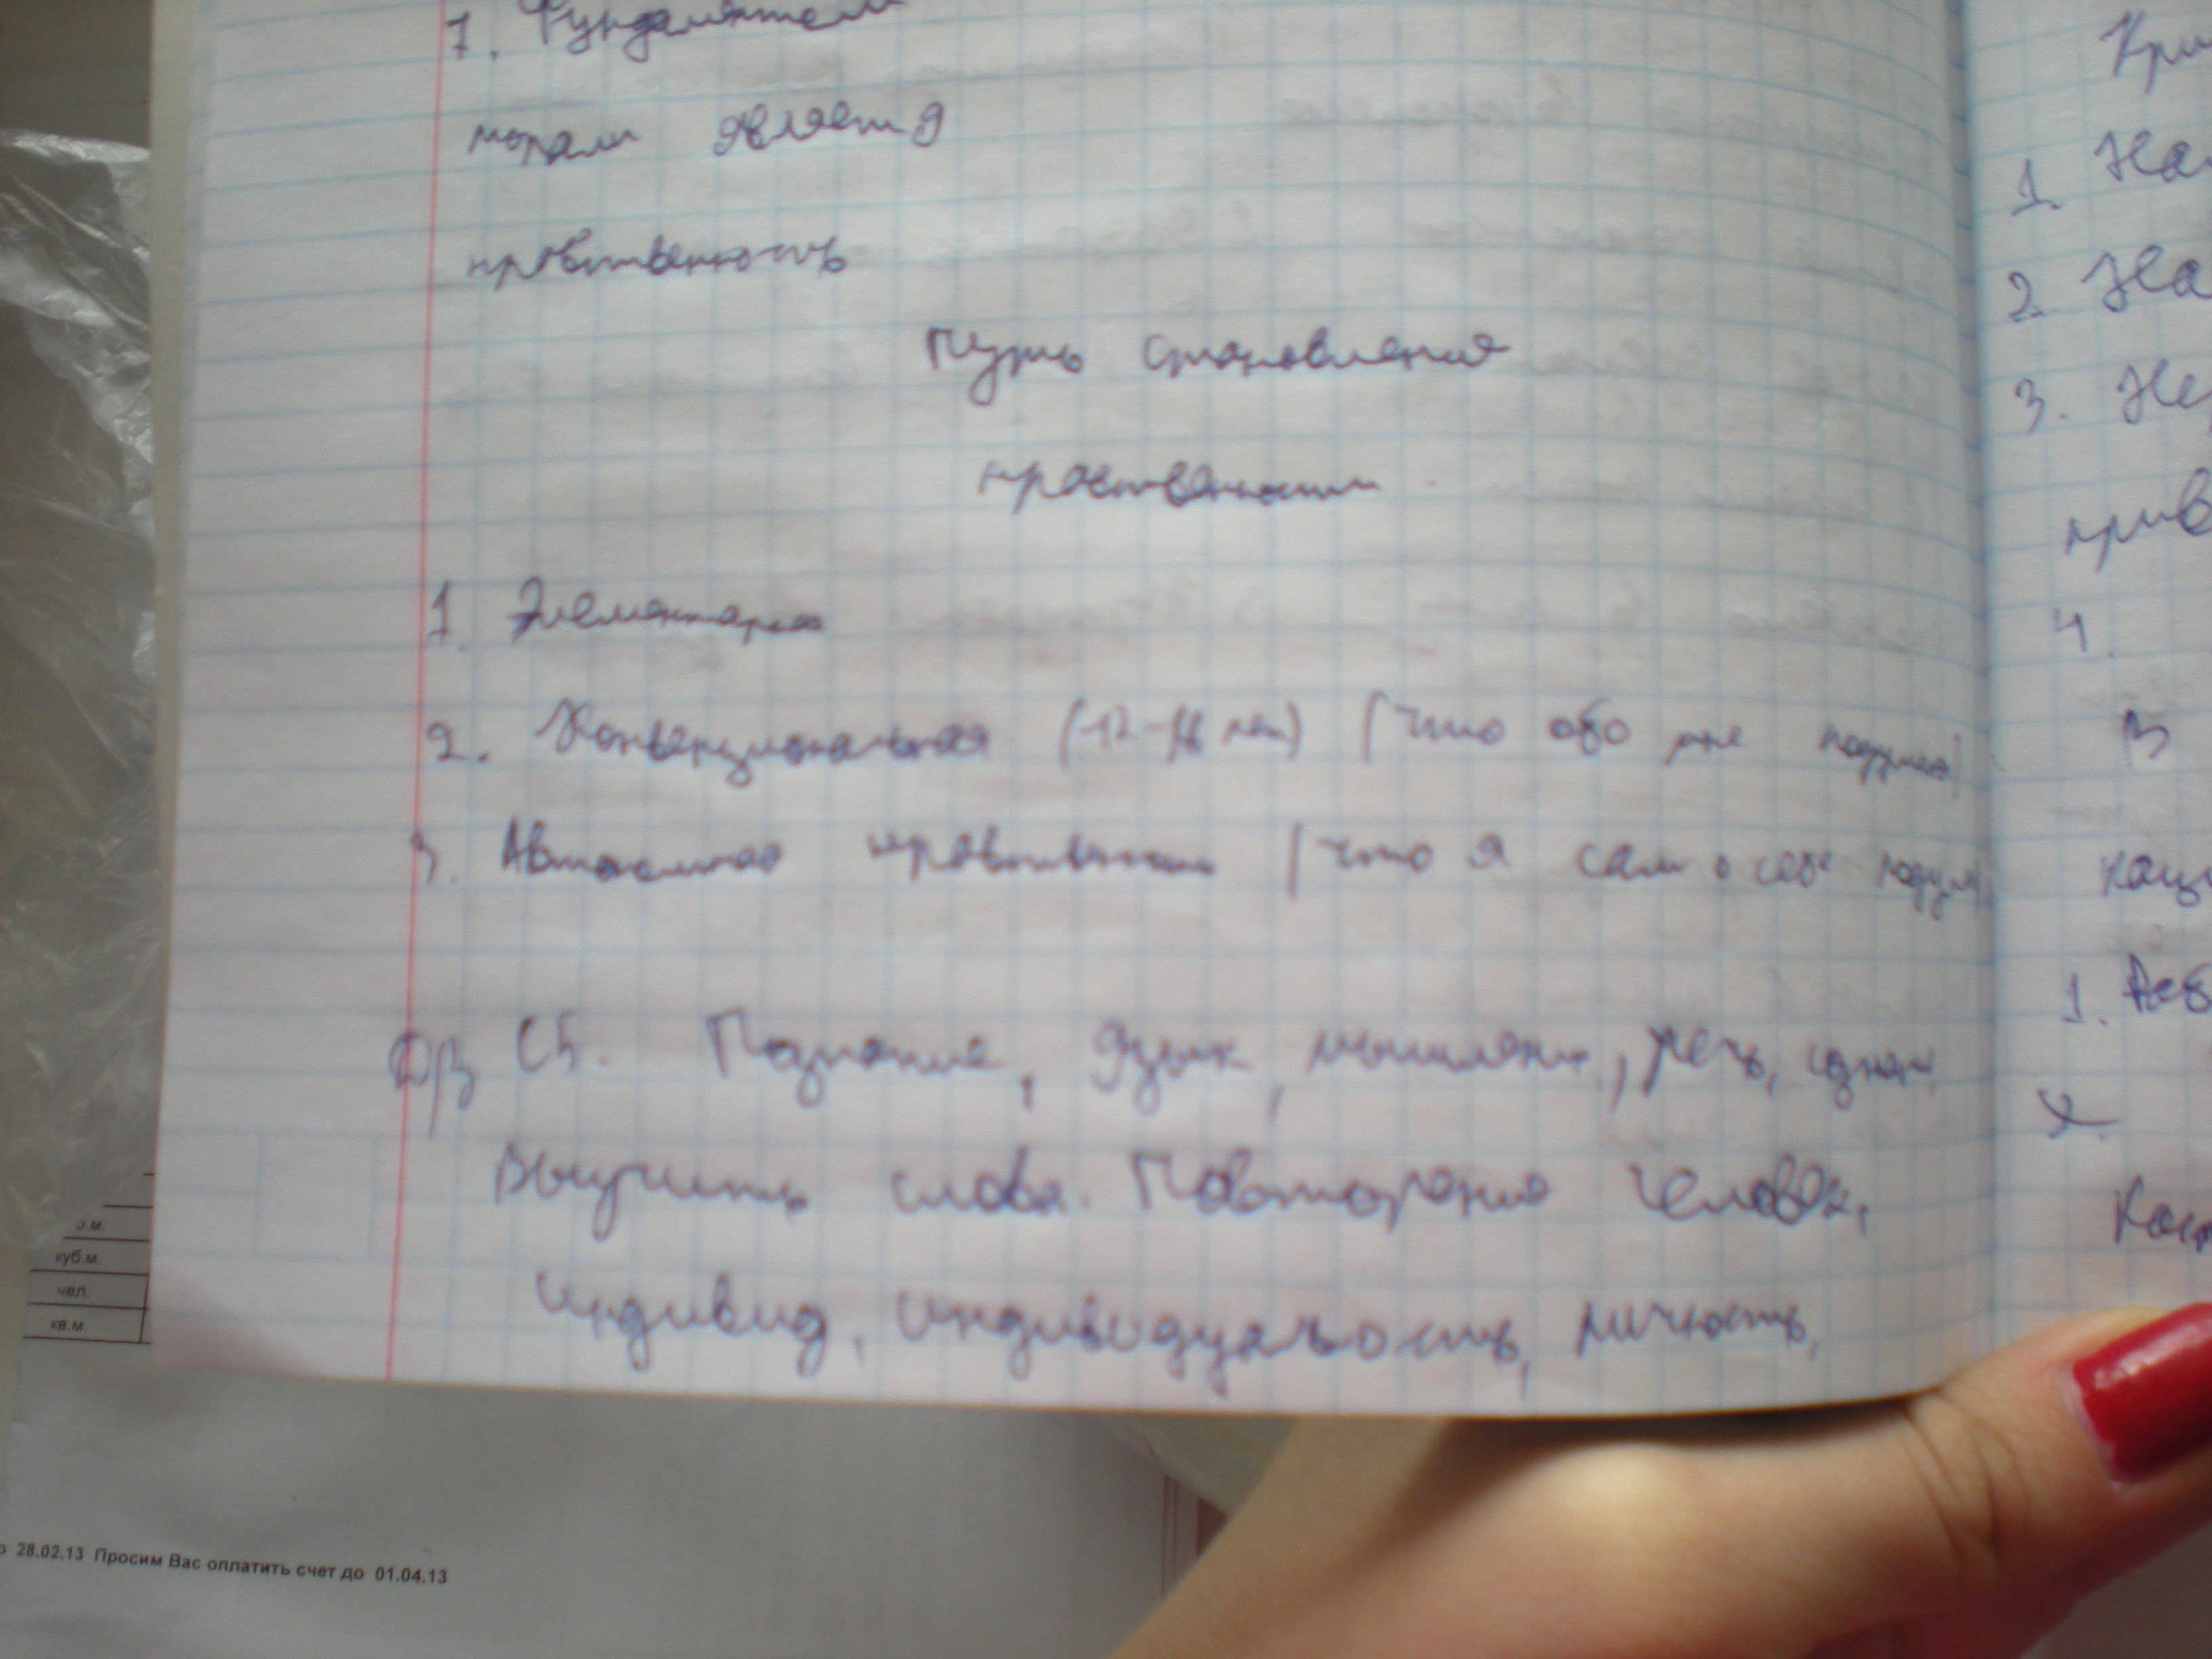 7. Фундаментом
морали является
нравственность
Путь становления
нравственности
1. Элементарная
2. Конвенциональная (12-18 лет) (что обо мне подумают)
3. Автономная нравственность (что я сам о себе подум
Д/З С5. Познание, язык, мышление, речь,
Выучить слова. Повторение человек,
индивид, индивидуальность, личность,
1. На
2. На
3. Не
4.
В
1.
2.
куб.м.
чел.
кв.м.
28.02.13 Просим Вас оплатить счет до 01.04.13